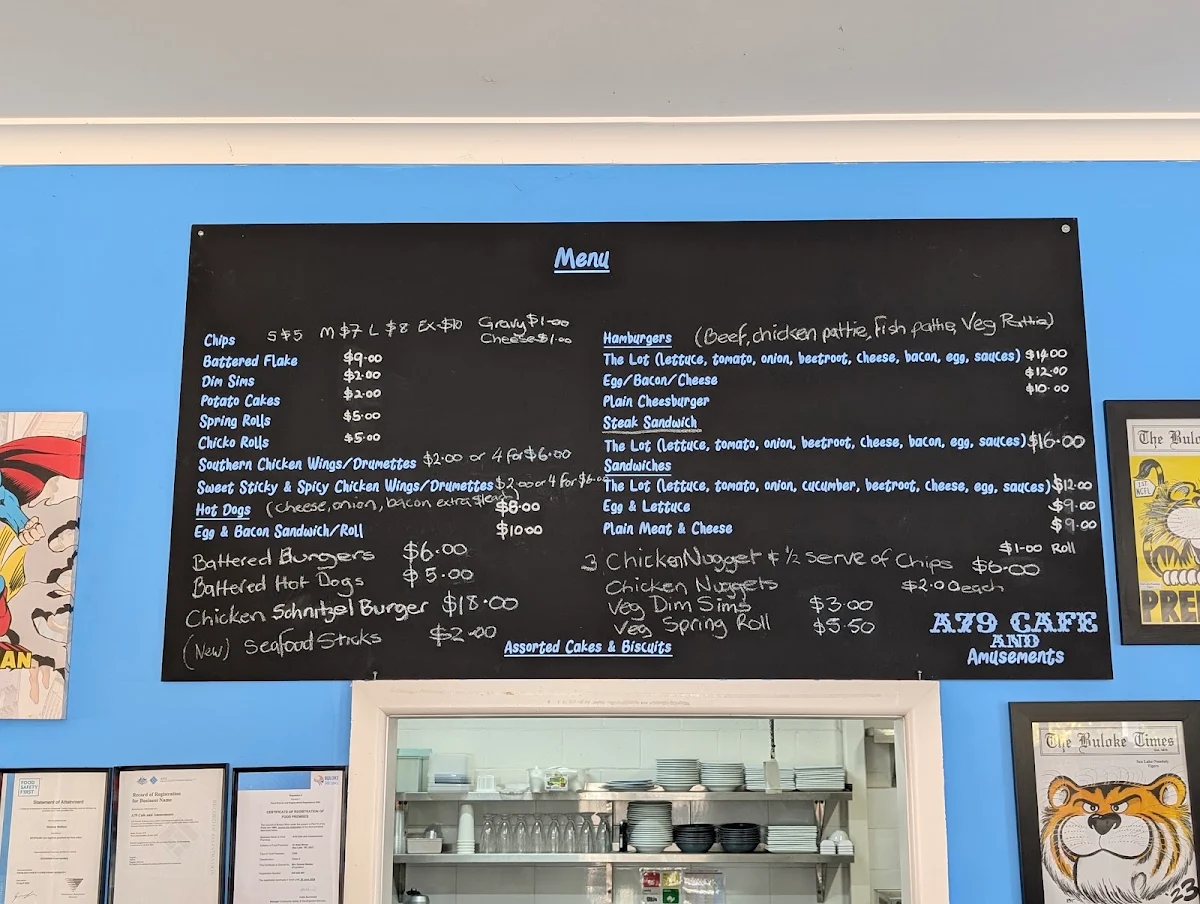 Menu
Chips S $5 M $7 L $8 EX-$10 Gravy $1-00
Cheese $1.00
Battered Flake $9.00
Dim Sims $2.00
Potato Cakes $2.00
Spring Rolls $5.00
Chicko Rolls $5.00
Southern Chicken Wings/Drumettes $2.00 or 4 for $6.00
Sweet Sticky & Spicy Chicken Wings/Drumettes $2.00 or 4 for $6.00
Hot Dogs (cheese, onion, bacon extra $1each) $8.00
Egg & Bacon Sandwich/Roll $10.00
Battered Burgers $6.00
Battered Hot Dogs $5.00
Chicken Schnitzel Burger $18.00
(New) Seafood Sticks $2.00
Hamburgers (Beef, chicken pattie, Fish pattie, Veg Pattie)
The Lot (lettuce, tomato, onion, beetroot, cheese, bacon, egg, sauces) $14.00
Egg/Bacon/Cheese $12.00
Plain Cheesburger $10.00
Steak Sandwich
The Lot (lettuce, tomato, onion, beetroot, cheese, bacon, egg, sauces) $16.00
Sandwiches
The Lot (lettuce, tomato, onion, cucumber, beetroot, cheese, egg, sauces) $12.00
Egg & Lettuce $9.00
Plain Meat & Cheese $9.00
$1-00 Roll
3 Chicken Nugget & 1/2 Serve of Chips $6.00
Chicken Nuggets $2.00each
Veg Dim Sims $3.00
Veg Spring Roll $5.50
Assorted Cakes & Biscuits
A79 CAFE
AND
Amusements
AN
The Bulo
PREM
The Buloke Times
'23
FOOD
SAFETY
FIRST
Statement of Attainment
Record of Registration
for Business Name
A79 Cafe and Amusements
CERTIFICATE OF REGISTRATION OF
FOOD PREMISES